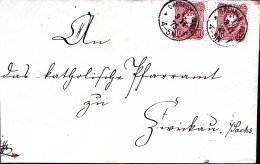 An
das katholische Pfarramt
zu
Zwickau.